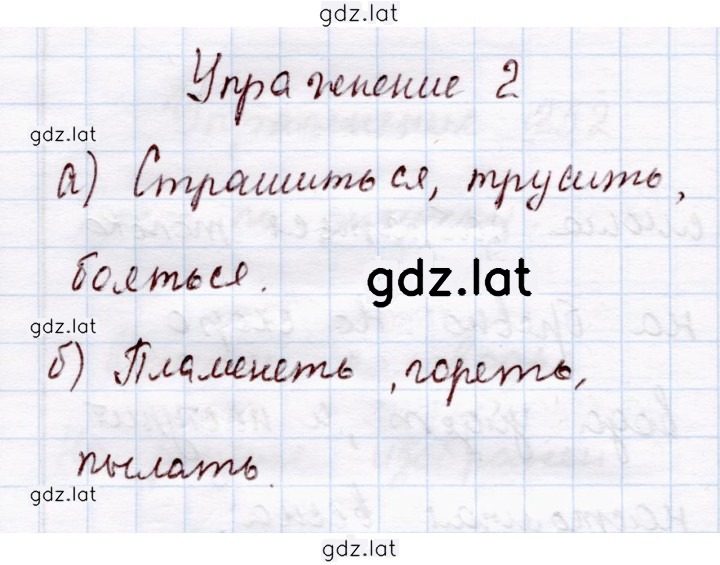 gdz.lat
Упражнение 2
gdz.lat
а) Страшиться, трусить,
бояться.
gdz.lat
gdz.lat
б) Пламенеть, гореть,
пылать.
gdz.lat
gdz.lat